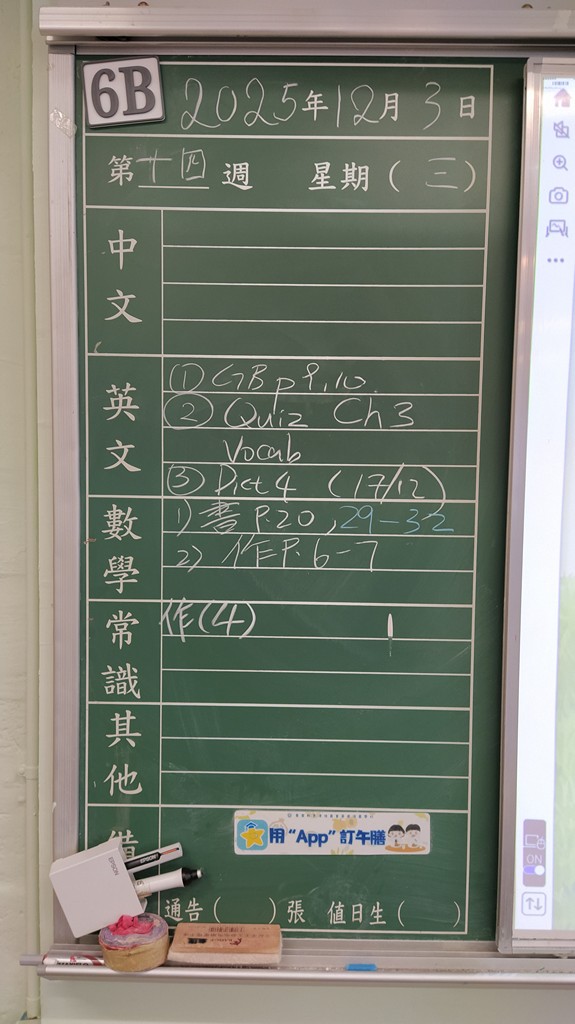 6B
2025年12月3日
第十四週 星期(三)
中文
英文
① GB p 9, 10.
② Quiz Ch3
Vocab
③ Dict 4 (17/12)
數學
1) 書 P.20, 29-32
2) 作 P. 6-7
常識
作(4)
其他
用“App”訂午膳
EPSON
EPSON
通告( )張 值日生( )
ON